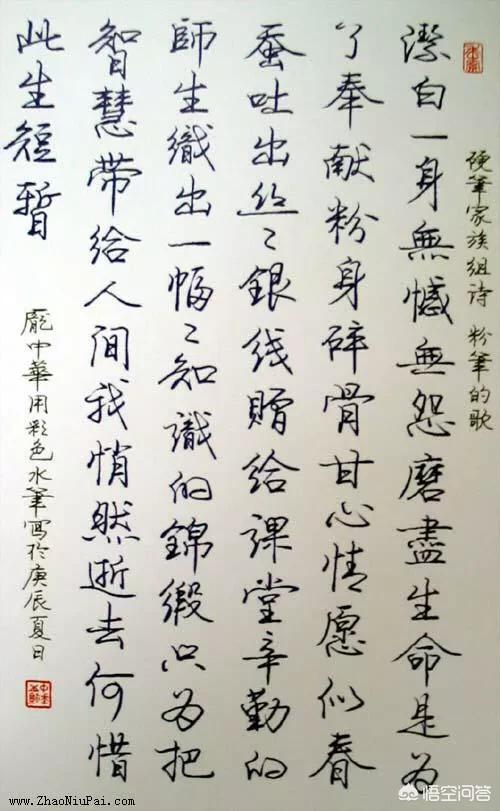 硬筆家族組诗 粉筆的歌
潔白一身無憾無怨磨盡生命是為
了奉献粉身碎骨甘心情愿似春
蚕吐出丝〻銀线赠给课堂辛勤的
師生織出一幅〻知識的錦緞只为把
智慧带给人间我悄然逝去何惜
此生短暂
龐中華用彩色水筆寫於庚辰夏日
www.ZhaoNiuPai.com
悟空问答